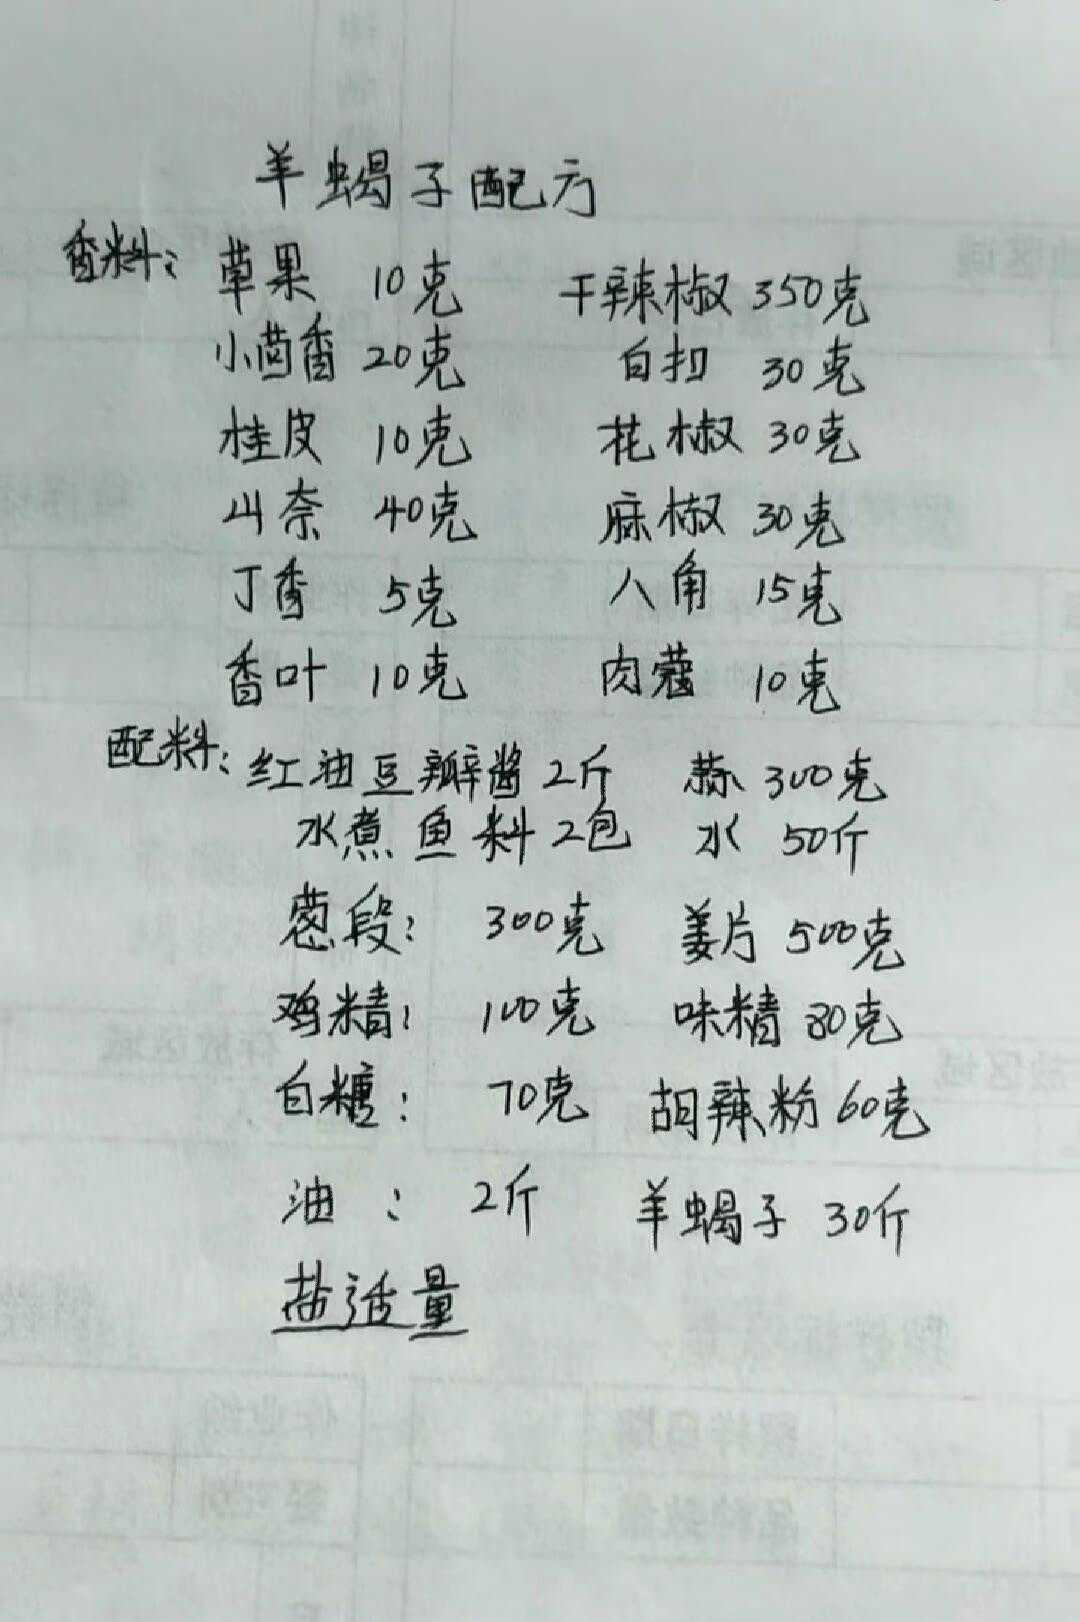 羊蝎子配方
香料: 草果 10克 干辣椒 350克
小茴香 20克 白扣 30克
桂皮 10克 花椒 30克
山奈 40克 麻椒 30克
丁香 5克 八角 15克
香叶 10克 肉蔻 10克
配料: 红油豆瓣酱 2斤 蒜 300克
水煮鱼料 2包 水 50斤
葱段: 300克 姜片 500克
鸡精: 100克 味精 80克
白糖: 70克 胡辣粉 60克
油: 2斤 羊蝎子 30斤
盐适量